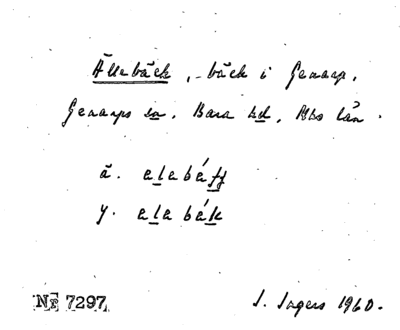 Ällebäck, bäck i Genarp,
Genarps sn. Bara hd, Mhs län.
ä. alabáff
y. alabák
NE 7297
J. Ingers 1960.